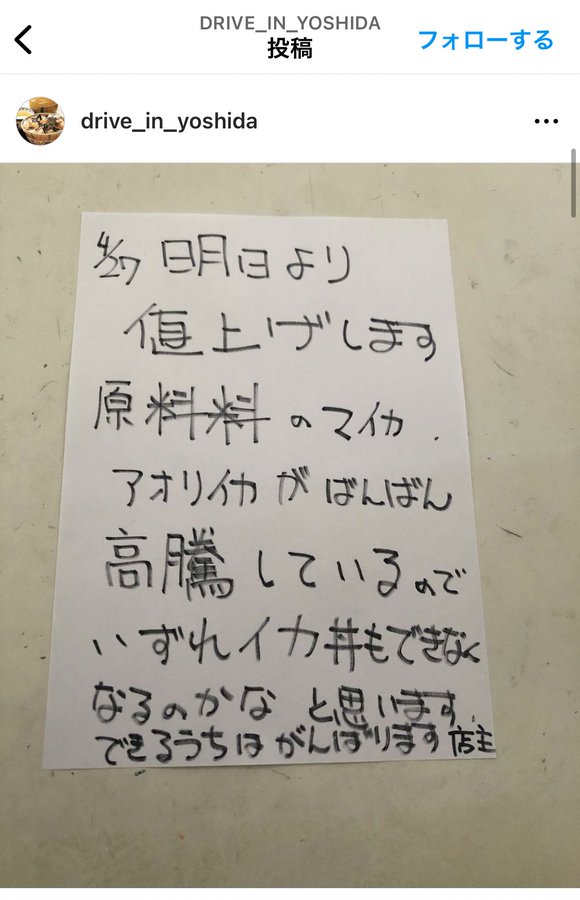 DRIVE_IN_YOSHIDA
投稿
フォローする
drive_in_yoshida
4/27 日明日より
値上げします
原料料のマイカ.
アオリイカがばんばん
高騰しているので
いずれイカ丼もできなく
なるのかな と思います.
できるうちはがんばります 店主